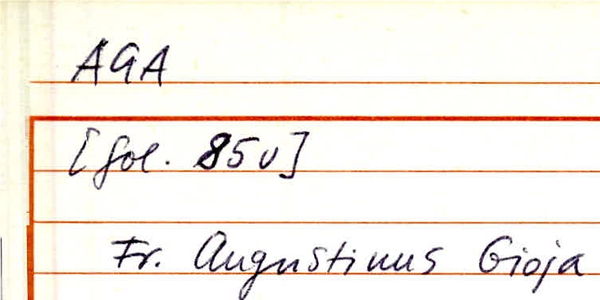 AGA
[fol. 85v]
Fr. Augustinus Gioja